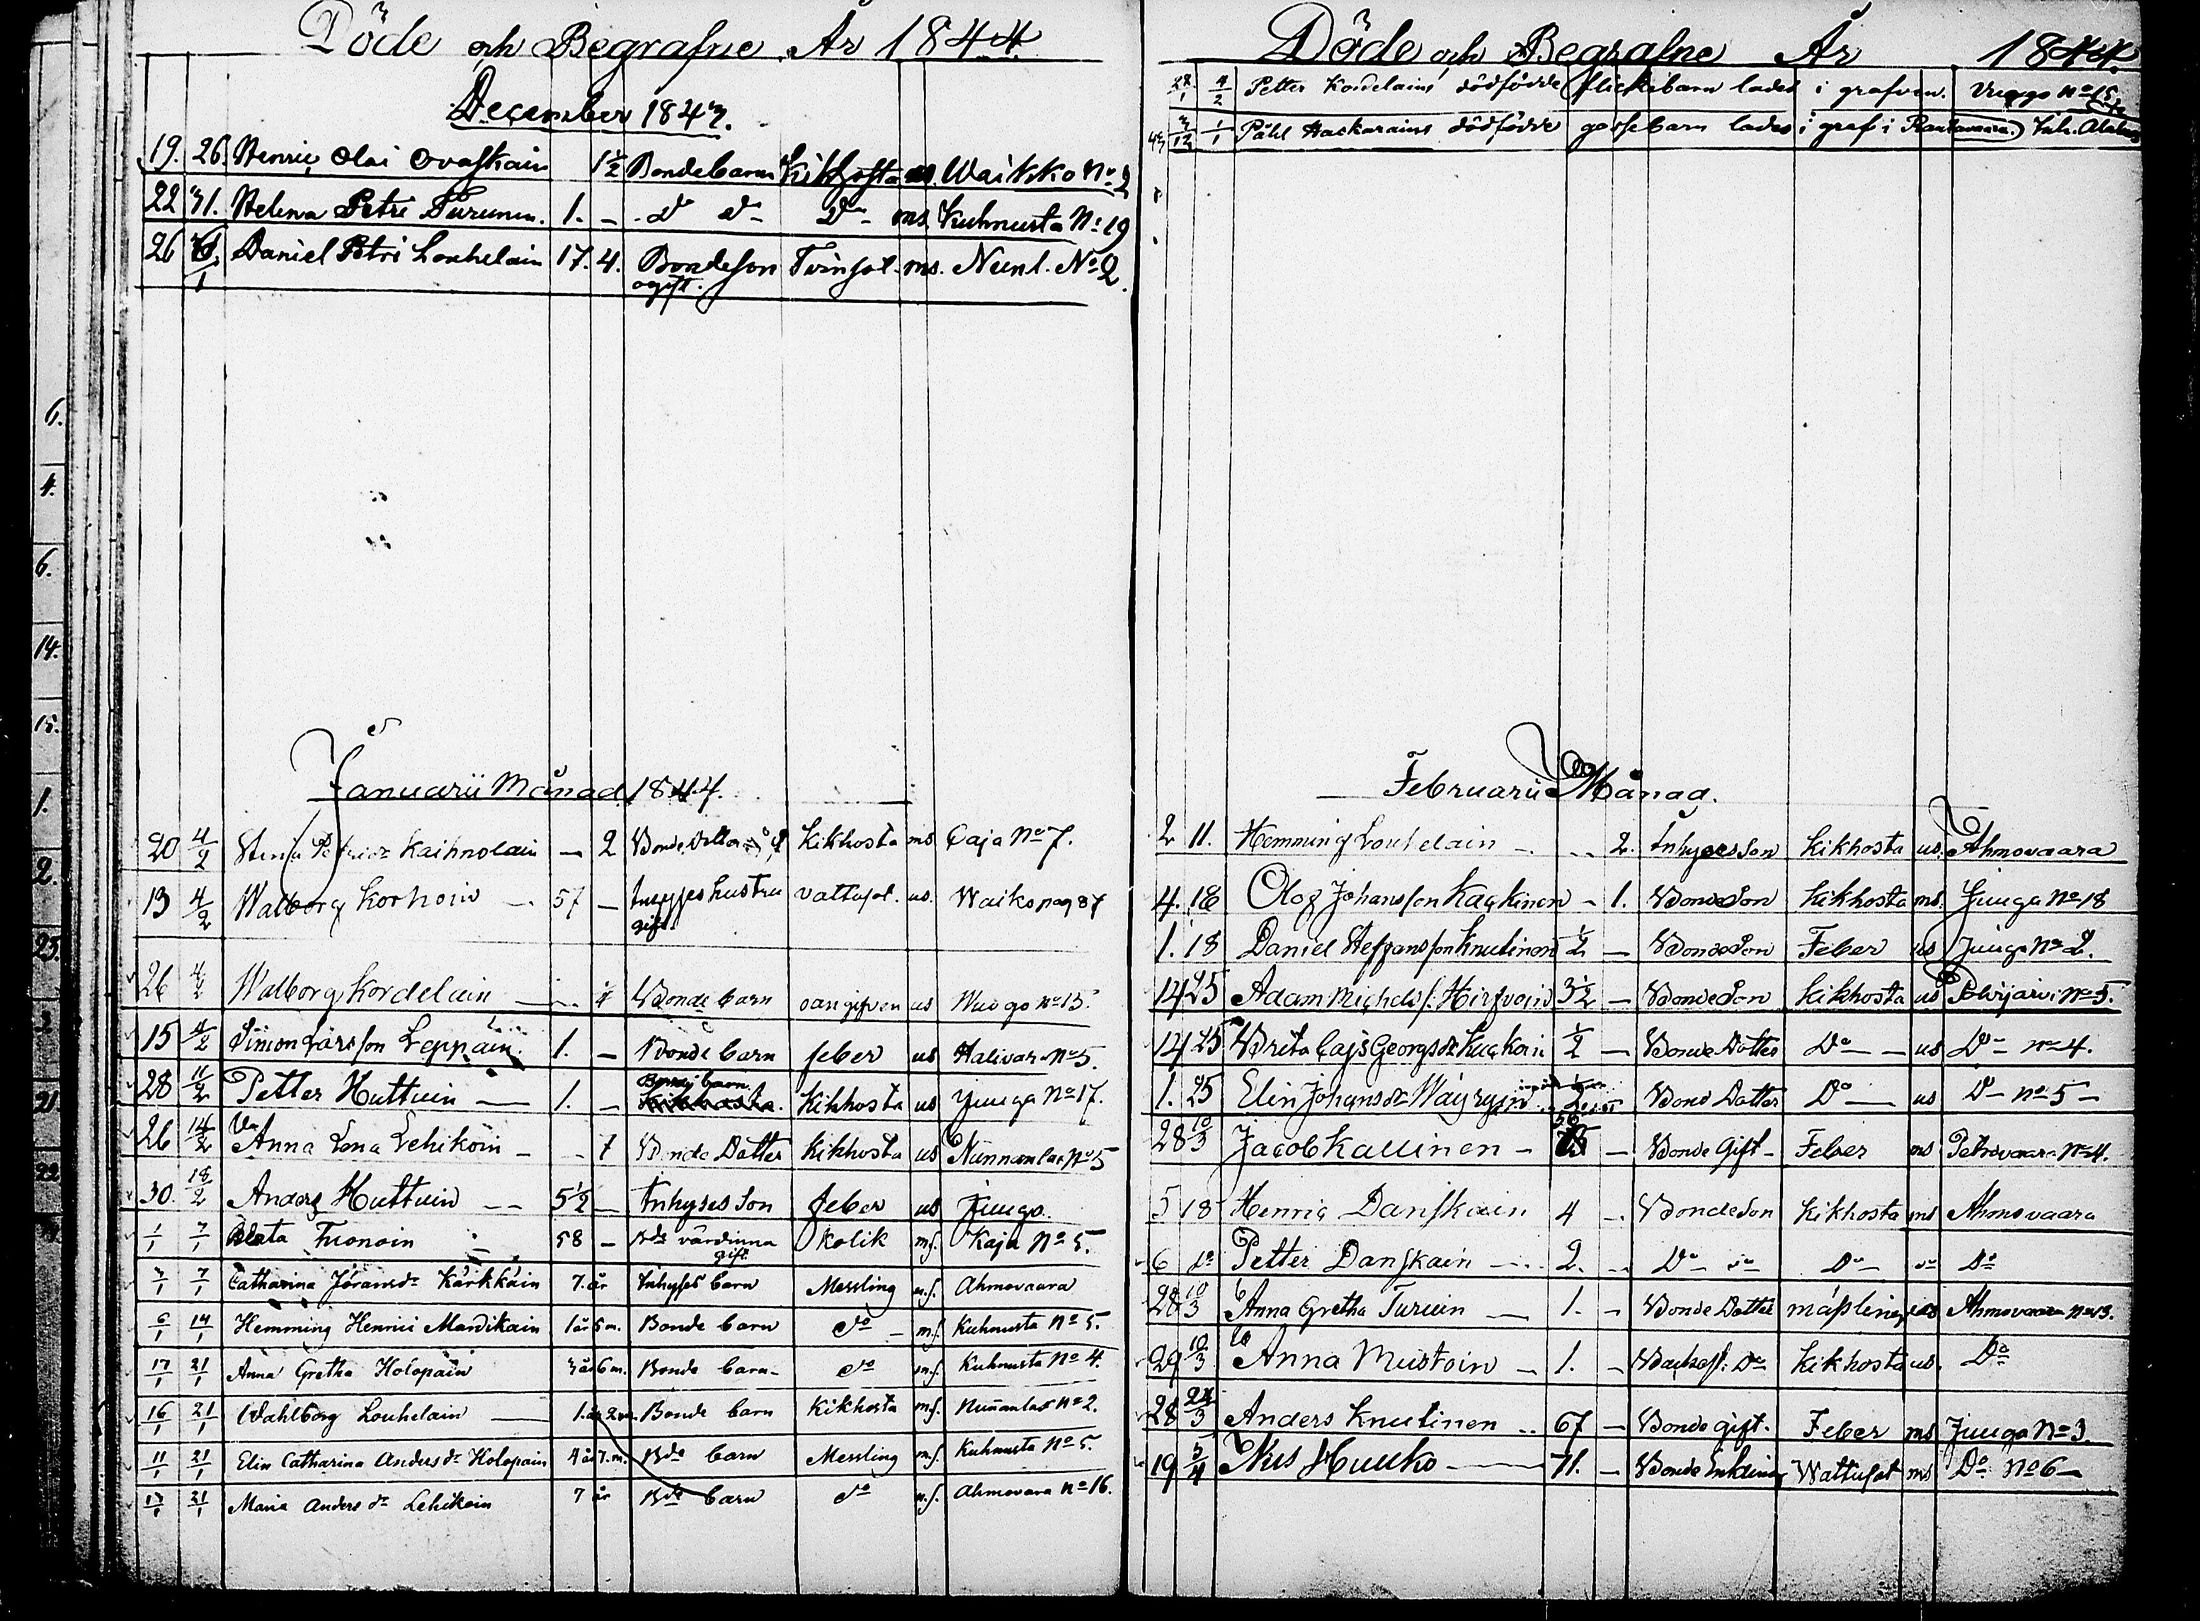 Döde och Begrafne År 1844.
December 1843.
19. 26. Henric Olai Ovaskain 1½ Bondebarn Kikhosta us. Waikko No 2
22 31. Helena Petri Turunen. 1. - do do do ms. Kuhnusta No 19
26 6/1 Daniel Petri Louhelain 17. 4. Bondeson Tvinsot ms. Nunl. No 2.
ogift.
Januarii Månad 1844.
20 4/2 Stina Petri dr Kaihnolain — 2 Bonde Kikhosta ms Caja No 7.
13 4/2 Walborg Korhoin — 57 — Inhyses hustru vattusot. us. Waiko pag 87
gift.
26 4/2 Walborg Kordelain — Bonde barn oangifven us No 15.
15 4/2 Simon Larsson Leppäin. 1. — Bonde barn feber us Halivara No 5.
28 11/2 Petter Huttuin — 1. — barn Kikhosta us Juuga No 17.
26 14/2 Anna Lena Lehikoin — 7 Bonde Dotter Kikhosta us Nunnanlax No 5
30. 18/2 Anders Huttuin — 5½ — Inhyses Son feber us Juuga.
1/1 7/1 Beata Tuonoin — 58 — Bde värdinna Kolik ms. Kaja No 5.
gift.
3/1 7/1 Catharina Jöransdr Kärkkäin 7. år Inhyses barn Messling m.s. Ahmovaara
6/1 14/1 Hemming Henrici Mardikain 1 år 5 m. Bonde barn do — m.s. Kuhnusta No 5.
17/1 21/1 Anna Gretha Holopain 3 år 6 m. Bonde barn do m.s. Kuhnusta No 4.
16/1 21/1 Wahlborg Louhelain — 1. år 2 m. Bonde barn Kikhosta m.s. Nunnanlax No 2.
11/1 21/1 Elin Catharina Anders dr Holopain 4 år 7. m. Bde barn Messling m.s. Kuhnusta No 5.
13/1 21/1 Maria Anders dr Lehikoin 7 år Bde barn do m.s. Ahmovara No 16.
Döde och Begrafne År 1844.
28/1 4/2 Petter Kordelains dödfödde flickebarn lades i grafven. No 15
43 3/12 1/1 Påhl Haskarains dödfödde gossebarn lades i graf i Rautavaara.
Februarii Månad.
2 11. Hemming Louhelain — 2. Inhyses Son Kikhosta us. Ahmovaara
4. 18 Olof Johansson Kackinen — 1. Bonde Son Kikhosta ms. Juuga No 18
1. 18 Daniel Steffansson Knutinen ½ — Bonde Son Feber us Juuga No 2.
14 25 Adam Michels s. Hirfvoin 3½ — Bonde Son Kikhosta us Polvijärvi No 5.
14 25 Brita Cajs Georgs dr Kuckoin ½ — Bonde Dotter Do — us Do No 4.
1. 25 Elin Johans dr Wäyryin ½ Bond Dotter Do — us Do No 5 —
28 10/3 Jacob Kallinen — — Bonde Gift — Feber ms Petrovaara No 4.
5 18 Henric Danskain 4 — Bondeson Kikhosta ms Ahmovaara
6 do Petter Danskain — 2. — Do do Do do Do
28 10/3 Anna Gretha Turuin — 1. — Bonde Dotter mässling us Ahmovaara No 13.
29 10/3 Anna Mustoin — 1. — Do Kikhosta us. Do
28 24/3 Anders Knutinen — 67 — Bonde gift. Feber ms Juuga No 3.
19 5/4 Nils Huuko — 71. — Bonde Enkling Wattusot ms Do No 6 —